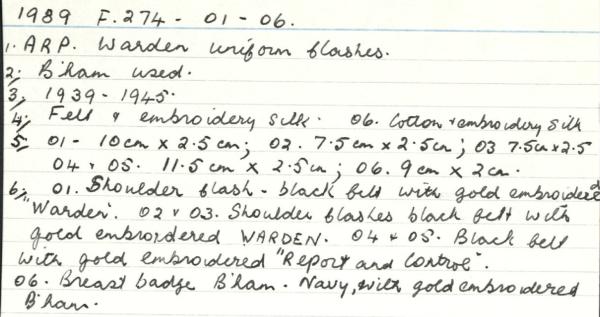 1989 F.274 - 01 - 06.
1. ARP. Warden uniform flashes.
2. B'ham used.
3. 1939 - 1945.
4. Felt & embroidery silk. 06. Cotton & embroidery silk
5. 01 - 10cm x 2.5cm; 02. 7.5cm x 2.5cm; 03 7.5cm x 2.5
04 & 05. 11.5cm x 2.5cm; 06. 9cm x 2cm.
6. 01. Shoulder flash - black felt with gold embroidered
"Warden". 02 & 03. Shoulder flashes black felt with
gold embroidered WARDEN. 04 & 05. Black felt
with gold embroidered "Report and Control".
06. Breast badge B'ham. Navy, with gold embroidered
B'ham.